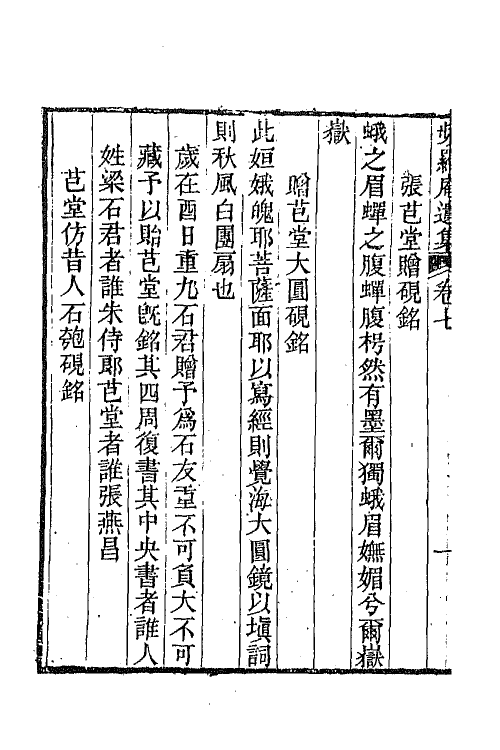 頻羅庵遺集 卷七 一
張芑堂贈硯銘
蛾之眉蟬之腹蟬腹枵然有墨爾獨蛾眉嫵媚兮爾嶽
嶽
贈芑堂大圓硯銘
此姮娥魄耶菩薩面耶以寫經則覺海大圓鏡以塡詞
則秋風白團扇也
歲在酉日重九石君贈予爲石友重不可負大不可
藏予以貽芑堂旣銘其四周復書其中央書者誰人
姓梁石君者誰朱侍郎芑堂者誰張燕昌
芑堂仿昔人石瓠硯銘